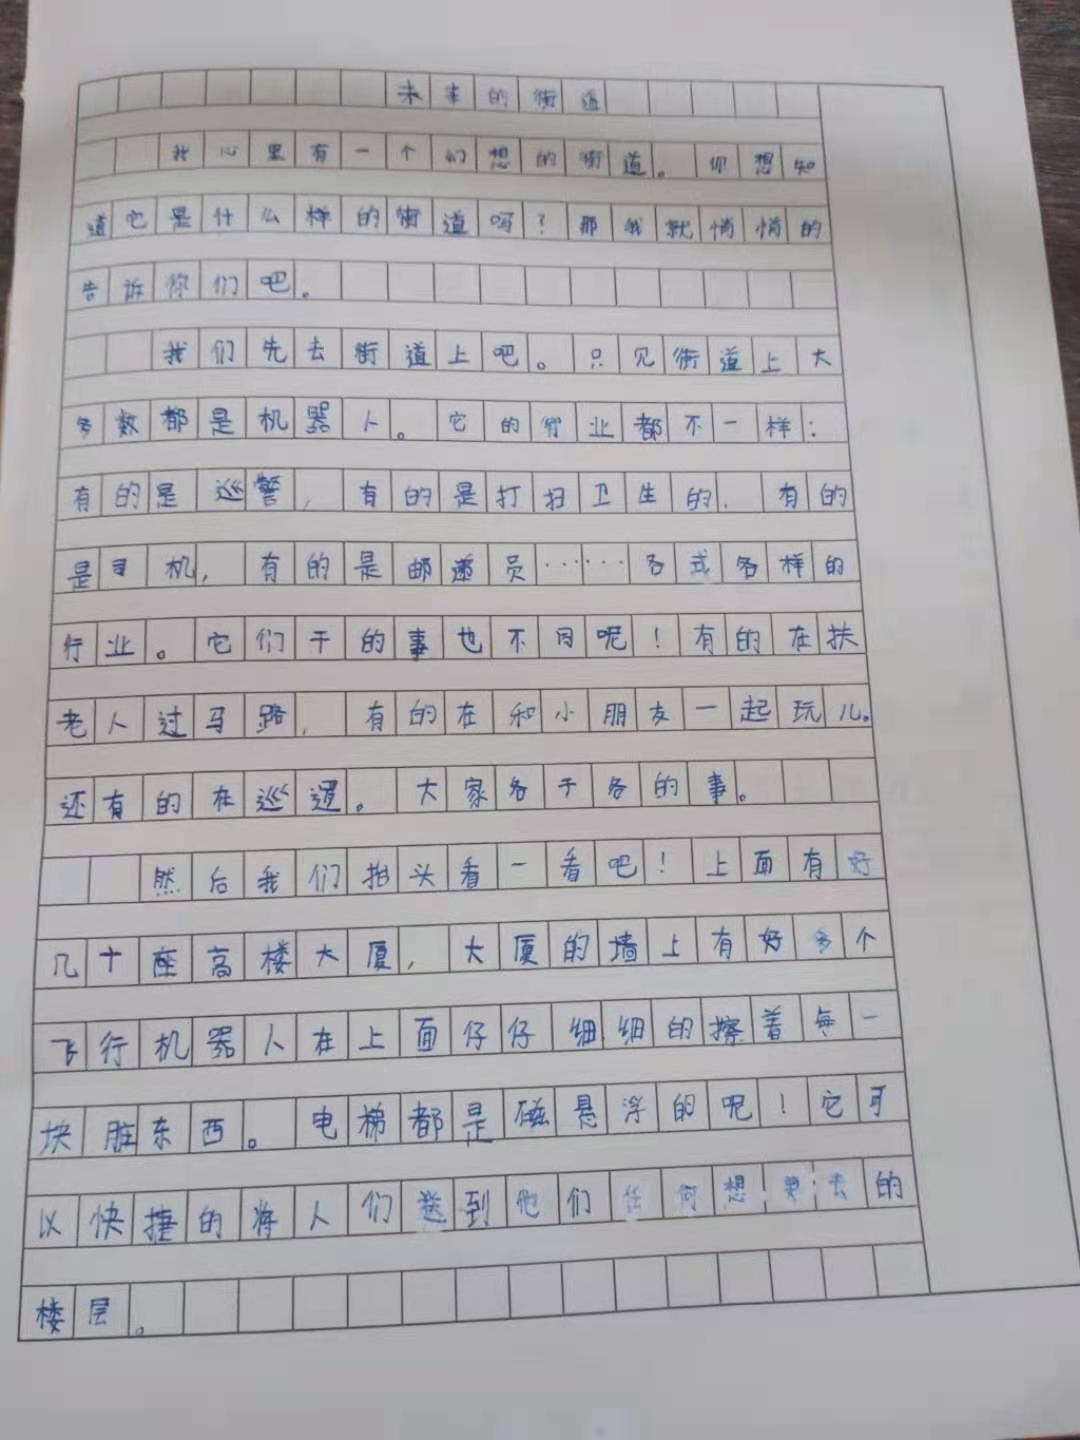 未来的街道
我心里有一个幻想的街道。你想知
道它是什么样的街道吗？那我就悄悄的
告诉你们吧。
我们先去街道上吧。只见街道上大
多数都是机器人。它的行业都不一样：
有的是巡警，有的是打扫卫生的，有的
是司机，有的是邮递员……各式各样的
行业。它们干的事也不同呢！有的在扶
老人过马路，有的在和小朋友一起玩儿。
还有的在巡逻。大家各干各的事。
然后我们抬头看一看吧！上面有好
几十座高楼大厦，大厦的墙上有好多个
飞行机器人在上面仔仔细细的擦着每一
块脏东西。电梯都是磁悬浮的呢！它可
以快捷的将人们送到他们任何想要去的
楼层。